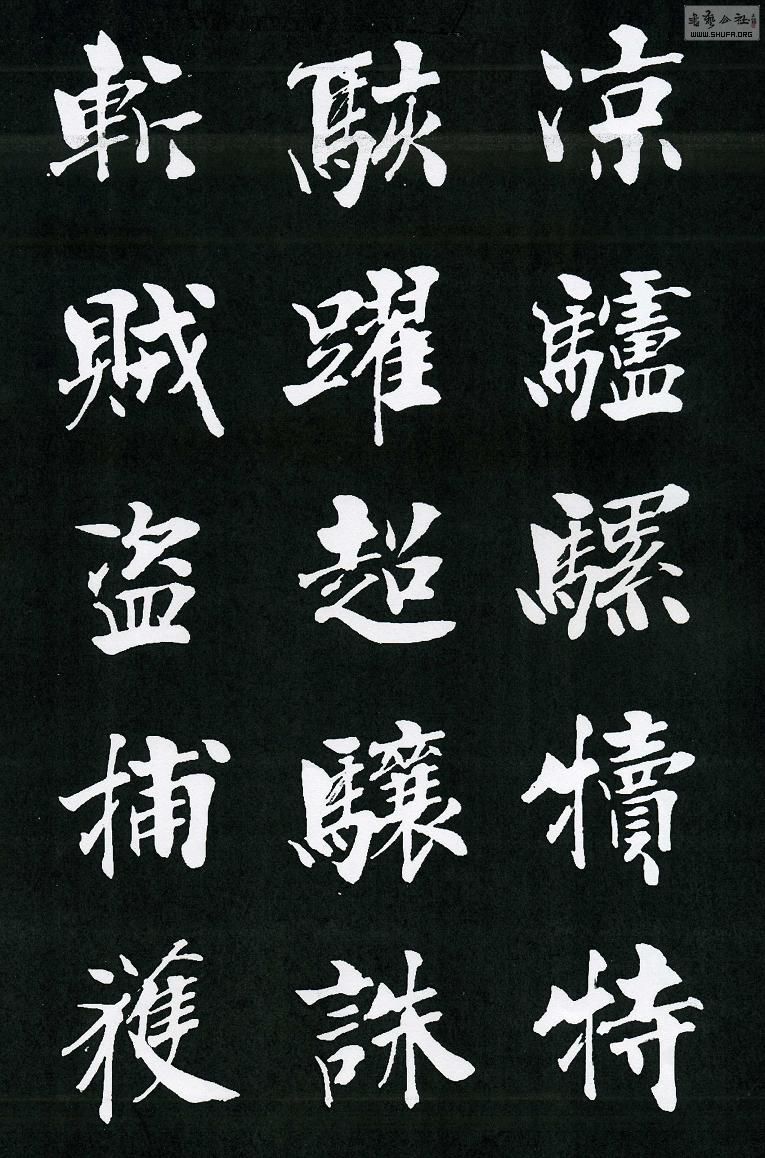 涼驢騾犢特
駭躍超驤誅
斬賊盜捕獲
WWW.SHUFA.ORG